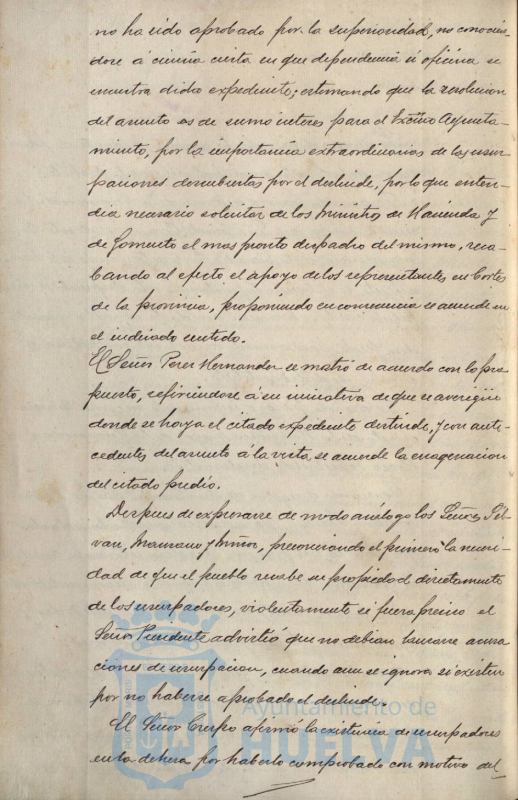 no ha sido aprobado por la superioridad, no conocien-
dose á ciencia cierta en que dependencia ú oficina se
encuentra dicho expediente; estimando que la resolucion
del asunto es de sumo interes para el Excmo Ayunta-
miento, por la importancia extraordinaria de las usur-
paciones descubiertas por el deslinde, por lo que enten-
dia necesario solicitar de los Ministros de Hacienda y
de Fomento el mas pronto despacho del mismo, reca-
bando al efecto el apoyo de los representantes en Cortes
de la provincia, proponiendo en consecuencia se acuerde en
el indicado sentido.
El Señor Perez Hernandez se mostró de acuerdo con lo pro-
puesto, refiriendose á su iniciativa de que se averigüe
donde se haya el citado expediente deslinde, y con ante-
cedentes del asunto á la vista, se acuerde la enagenacion
del citado predio.
Despues de expresarse de modo análogo los Señores
Mascaros y Muñoz, preconizando el primero la necesi-
dad de que el pueblo recabe su propiedad directamente
de los usurpadores, violentamente si fuera preciso el
Señor Presidente advirtió que no debian lanzarse acusa
ciones de usurpacion, cuando aun se ignora si existen
por no haberse aprobado el deslinde.
El Señor Crespo afirmó la existencia de usurpadores
en la dehesa por haberlo comprobado con motivo del
Ayuntamiento de
HUELVA